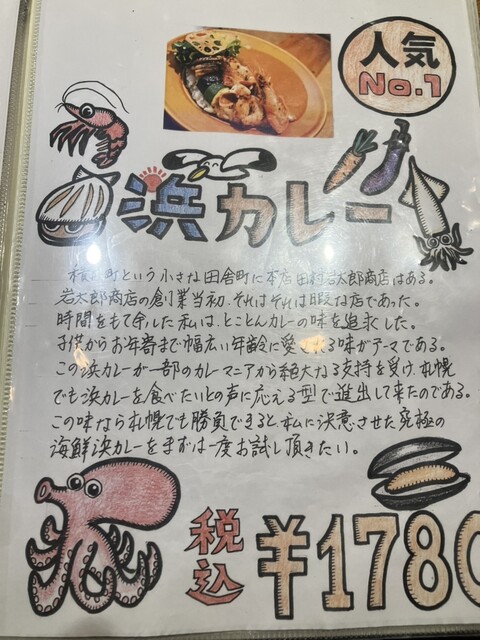 人気
No.1
浜カレー
町という小さな田舎町に本店田村岩太郎商店はある。
岩太郎商店の創業当初、それはそれは暇な店であった。
時間をもて余した私は、とことんカレーの味を追求した。
子供からお年寄まで幅広い年齢に愛される味がテーマである。
この浜カレーが一部のカレーマニアから絶大なる支持を受け、札幌
でも浜カレーを食べたいとの声に応える型で進出して来たのである。
この味なら札幌でも勝負できると私に決意させた究極の
海鮮浜カレーをまずは一度お試し頂きたい。
税込
¥1780